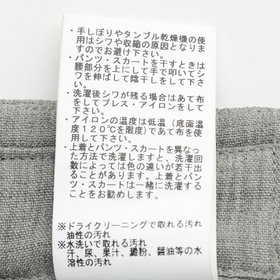 ・手しぼりやタンブル乾燥機の使
用はシワや収縮の原因となりま
すのでお避け下さい。
・パンツ・スカートを干すときは
腰部分を上にして手で叩いてシ
ワを伸ばして陰干しをして下さ
い。
・洗濯後シワが残る場合はあて布
をしてプレス・アイロンをして
下さい。
・アイロンの温度は低温（底面温
度120℃を限度）であて布を使
用して下さい。
・上着とパンツ・スカートを異なっ
た方法で洗濯しますと、洗濯回
数によっては色の違いが若干出
ることがあります。上着とパン
ツ・スカートは一緒に洗濯する
ことをお勧めします。
※ドライクリーニングで取れる汚れ
油性の汚れ
※水洗いで取れる汚れ
汗、尿、果汁、澱粉、醤油等の水
溶性の汚れ